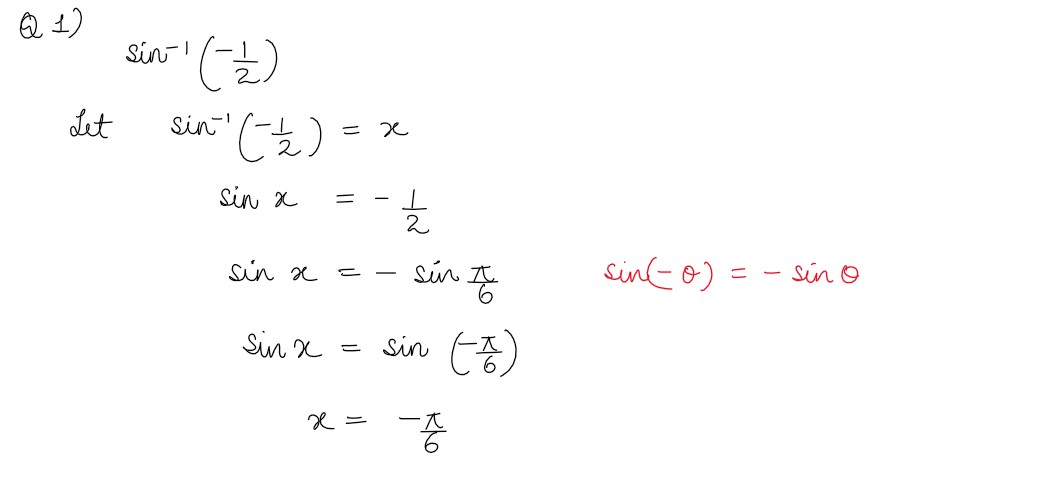 Q 1)
sin⁻¹(-1/2)
Let sin⁻¹(-1/2) = x
sin x = - 1/2
sin x = - sin π/6 sin(-θ) = - sin θ
sin x = sin (-π/6)
x = -π/6